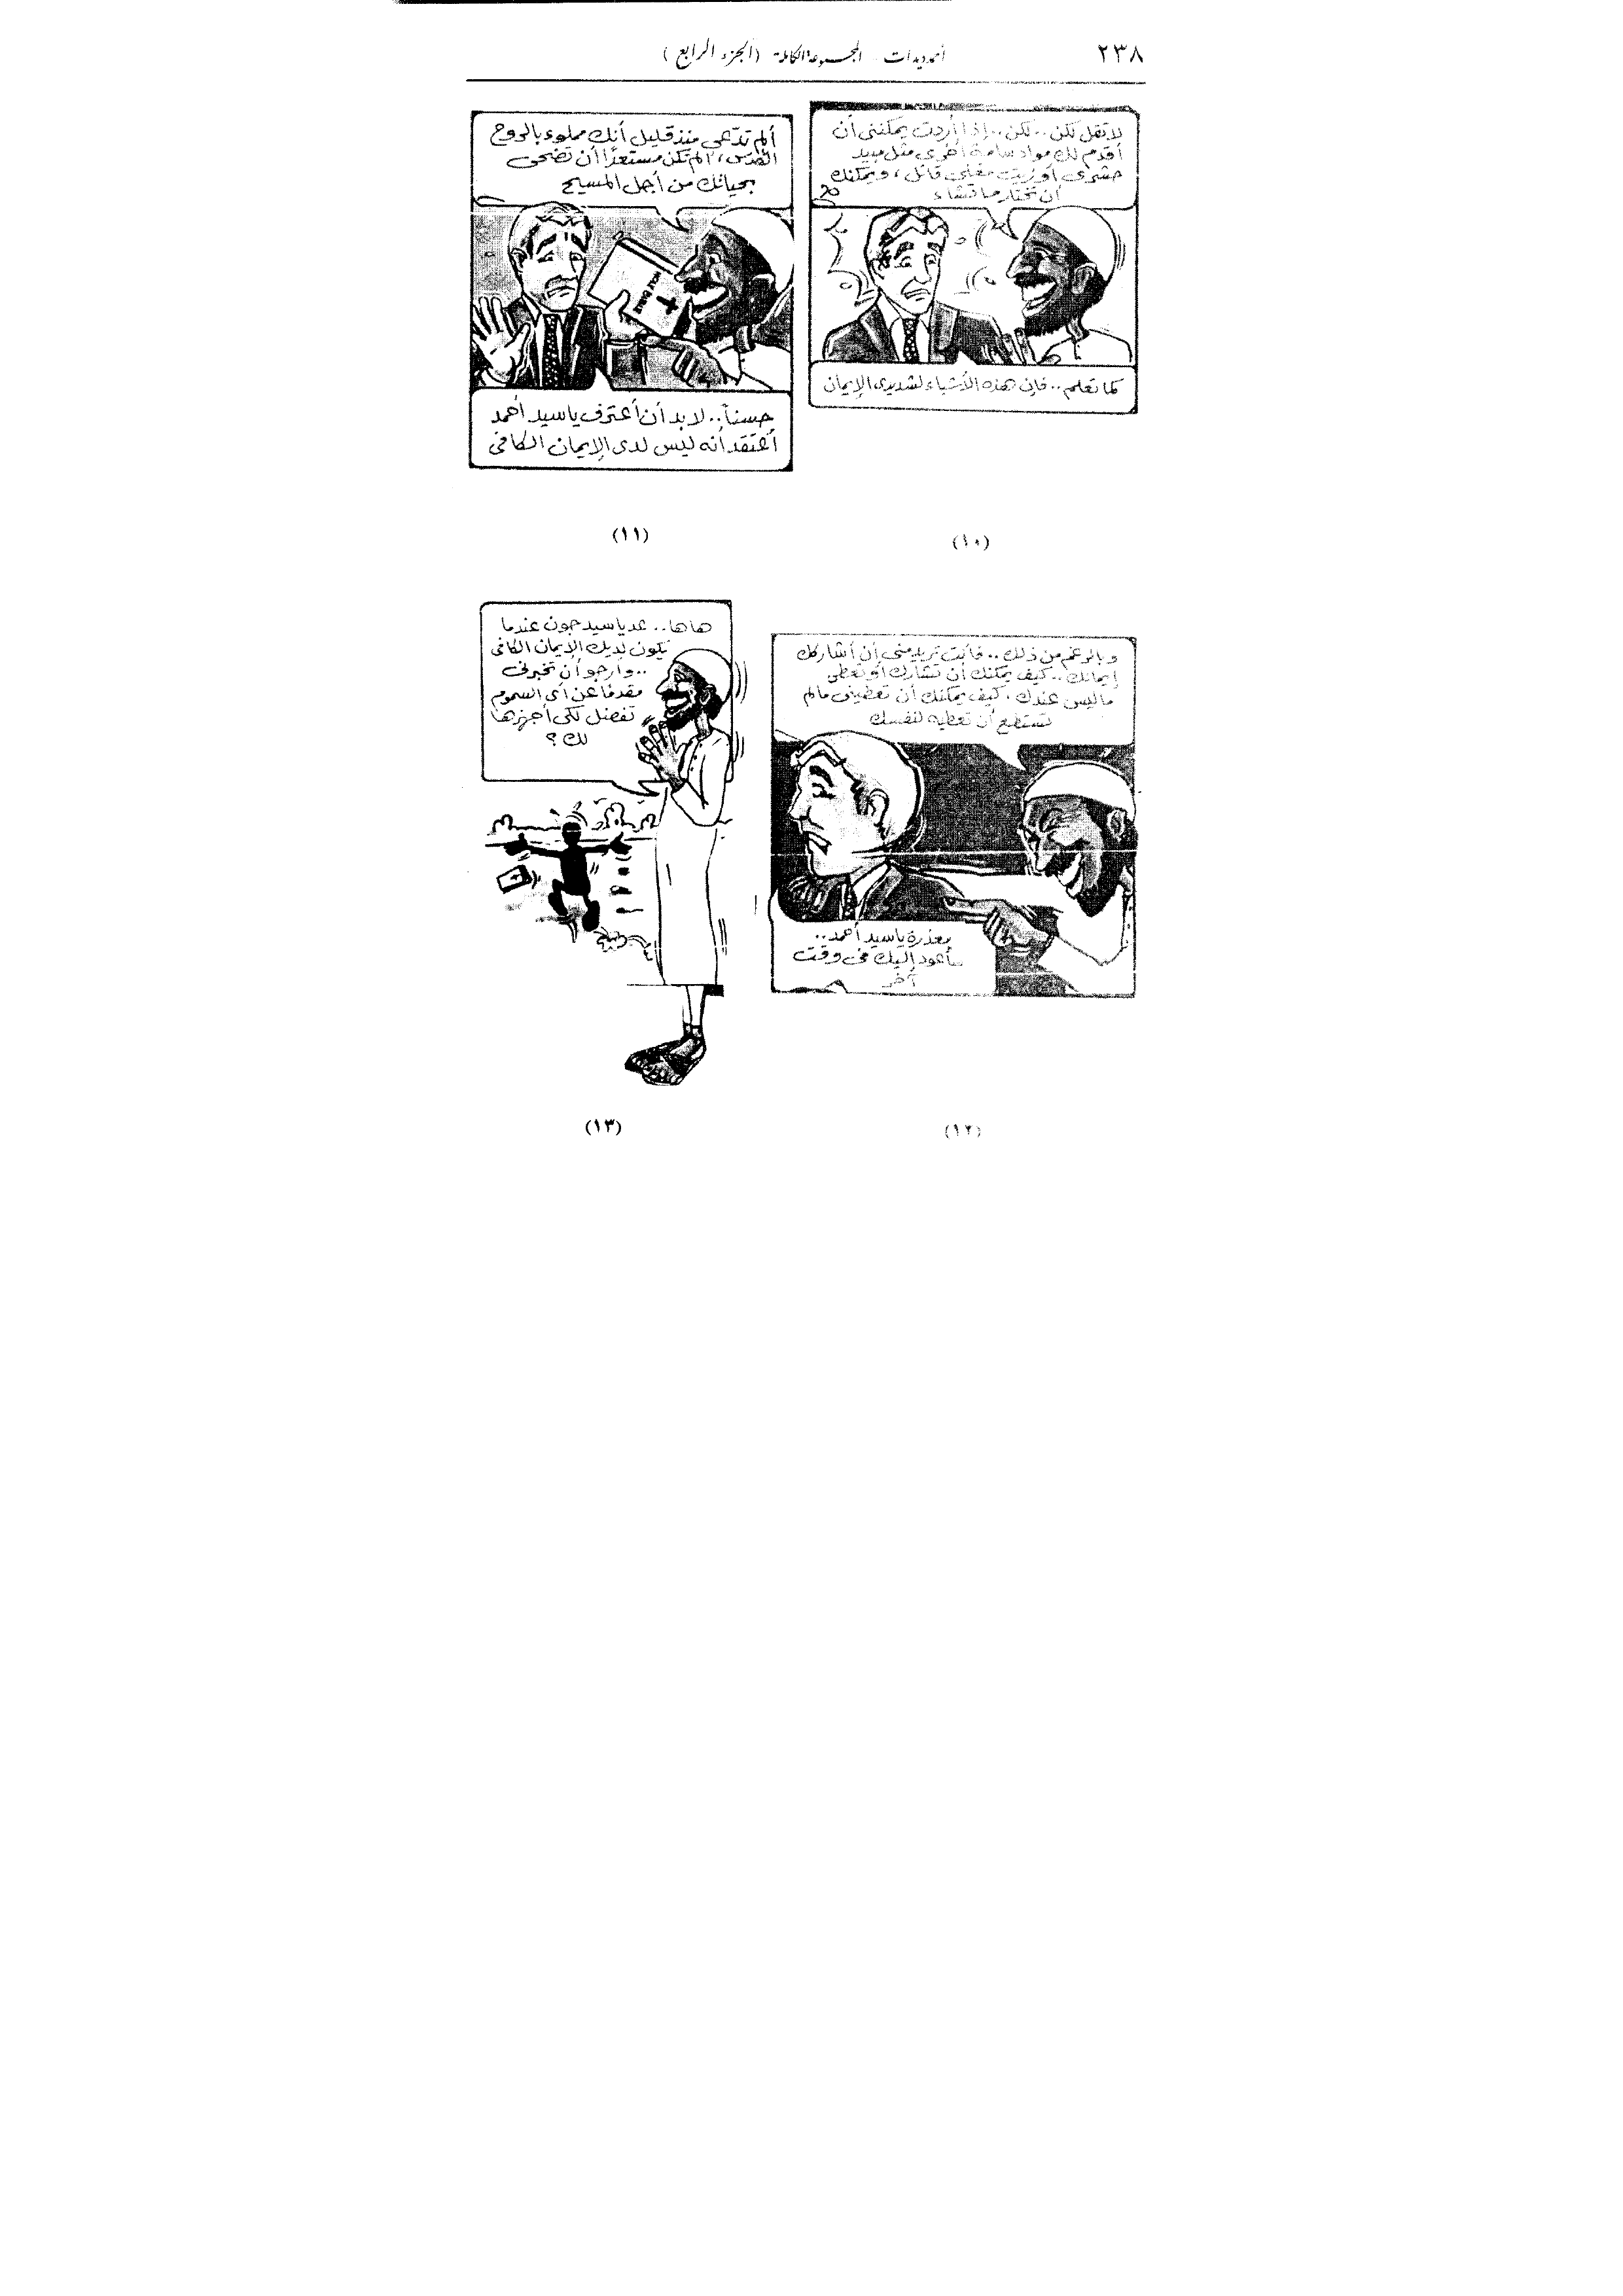 ٢٣٨
المجموعة الكاملة (الجزء الرابع)
لا تقل لكن .. لكن .. إذا أردت يمكننى أن
أقدم لك مواد سامة أخرى مثل مبيد
حشرى أو زيت مغلى قاتل ، ويمكنك
أن تختار ما تشاء
كما تعلم .. فإن هذه الأشياء لشديدى الإيمان
(١٠)
ألم تدّعى منذ قليل أنك مملوء بالروح
القدس ، ألم تكن مستعدًا أن تضحى
بحياتك من أجل المسيح
HOLY BIBLE
حسناً .. لابد أن أعترف يا سيد أحمد
أعتقد أنه ليس لدى الإيمان الكافى
(١١)
وبالرغم من ذلك .. فأنت تريد منى أن أشاركك
إيمانك .. كيف يمكنك أن تشارك أو تعطى
ما ليس عندك ، كيف يمكنك أن تعطينى ما لم
تستطع أن تعطيه لنفسك
معذرة يا سيد أحمد ..
سأعود إليك فى وقت
آخر
(١٢)
هاها .. عد يا سيد جون عندما
يكون لديك الإيمان الكافى
.. وأرجو أن تخبرنى
مقدمًا عن أى السموم
تفضل لكى أجهزها
لك ؟
(١٣)